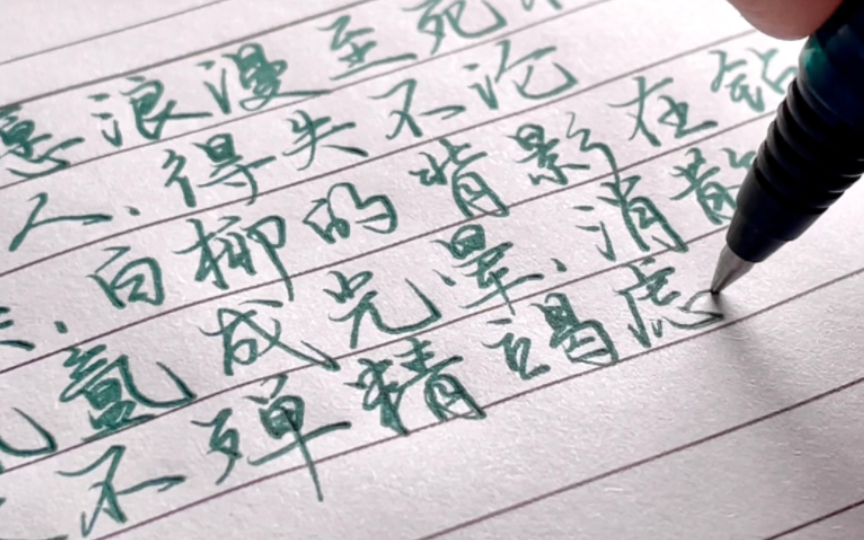 浪漫至死
人、得失不论
白柳的背影在钻
氤氲成光晕、消散
不殚精竭虑